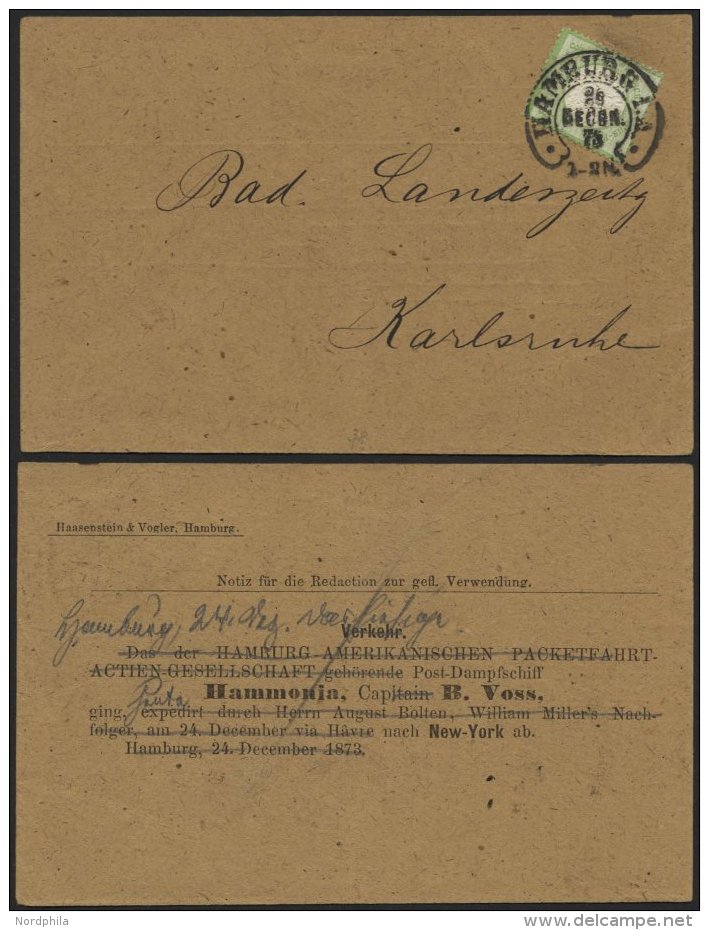 HAMBURG I.A.
DECBR.
Bad. Landeszeitg
Karlsruhe
Haasenstein & Vogler, Hamburg.
Notiz für die Redaction zur gefl. Verwendung.
Hamburg, 24. Dez. Das hiesige
Verkehr.
Das der HAMBURG-AMERIKANISCHEN PACKETFAHRT-
ACTIEN-GESELLSCHAFT gehörende Post-Dampfschiff
Hammonia, Captain B. Voss,
ging, heute expedirt durch Herrn August Bolten, William Miller's Nach-
folger, am 24. December via Hâvre nach New-York ab.
Hamburg, 24. December 1873.
Nordphila
delcampe.net